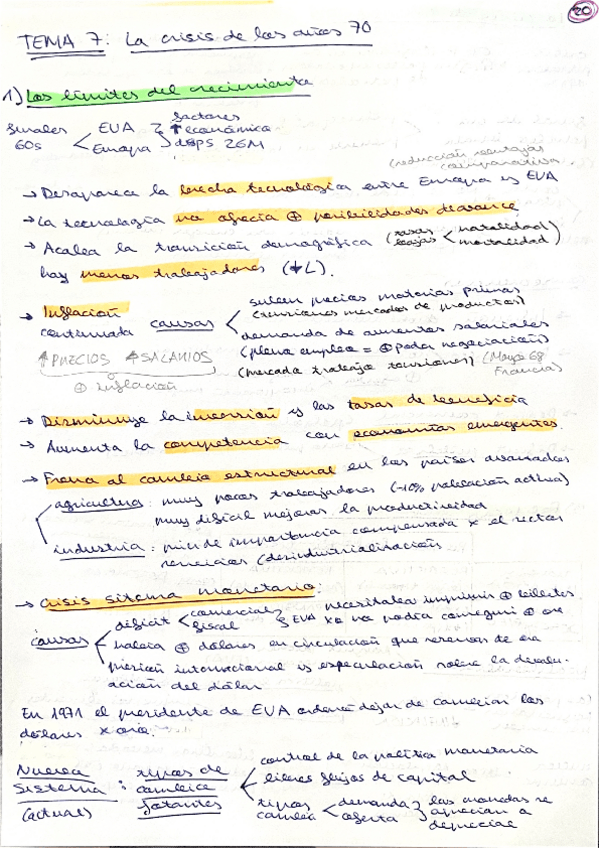 20
TEMA 7: La crisis de los años 70
1) Los límites del crecimiento
finales 60s < EUA Europa } factores ↑ económico dsps 2GM
(reducción ventajas comparativas
→ Desaparece la brecha tecnológica entre Europa y EUA
→ La tecnología no ofrecía ⊕ posibilidades de avance
→ Acaba la transición demográfica (tasas bajas < natalidad mortalidad)
hay menos trabajadores (↓L).
→ Inflación continuada causas < suben precios materias primas (tensiones mercados de productos)
demanda de aumentos salariales
(pleno empleo = ⊕ poder negociación)
(mercado trabajo tensiones) (Mayo 68 Francia)
↑ PRECIOS ↑ SALARIOS
⊕ inflación
→ Disminuye la inversión y las tasas de beneficio
→ Aumenta la competencia con economías emergentes.
→ Freno al cambio estructural en los países avanzados
agricultura: muy pocos trabajadores (~10% población activa)
muy difícil mejorar la productividad
industria: pierde importancia compensada x el sector
servicios (desindustrialización
→ Crisis sistema monetario:
causas < déficit < comercial fiscal } EUA necesitaba imprimir ⊕ billetes
xo no podía conseguir ⊕ oro
había ⊕ dólares en circulación que reservas de oro
presión internacional y especulación sobre la devaluación del dólar
En 1971 el presidente de EUA ordena dejar de cambiar los
dólares x oro.
Nuevo sistema (actual) : tipos de cambio flotantes < control de la política monetaria
libres flujos de capital
tipos cambio < demanda oferta } las monedas se aprecian o deprecian